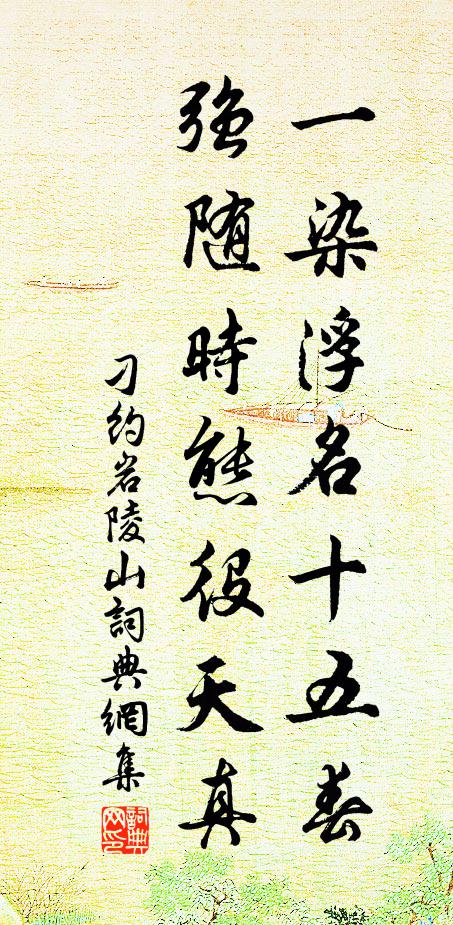 一染浮名十五春
强随時態役天真
刁約岩陵山詞典網集
詞典网印